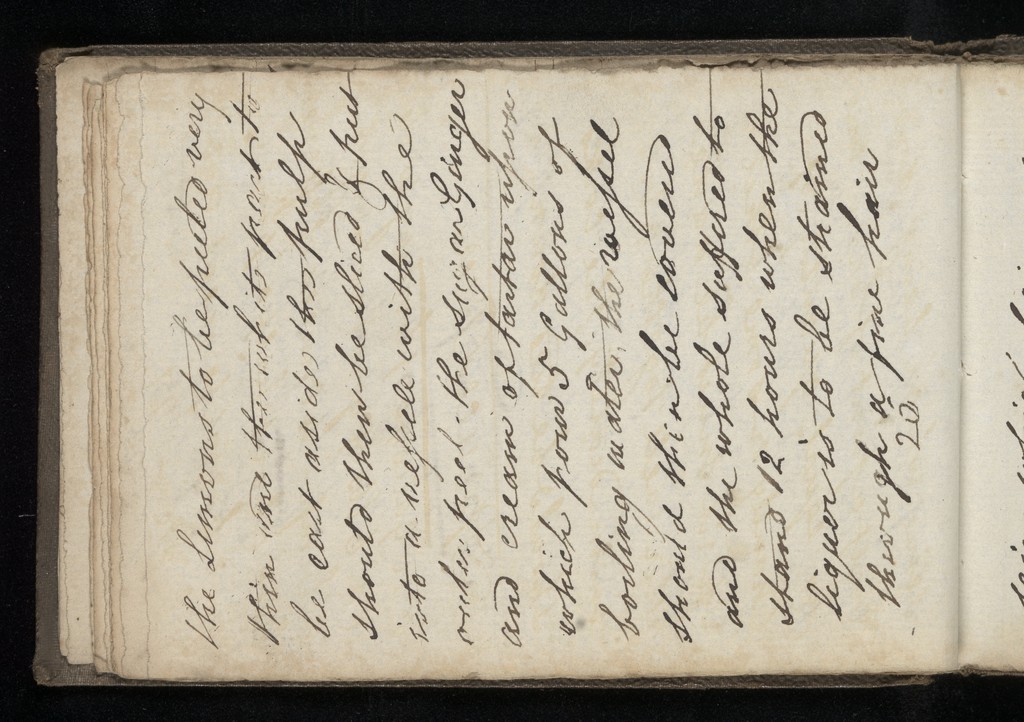 the Lemons to be peeled very
thin and the white part to
be cast aside the pulp
should then be sliced & put
into a vessele with the
outer peel. the Sugar Ginger
and cream of tartar upon
which pour 5 Gallons of
boiling water, the vessel
should then be covered
and the whole suffered to
stand 12 hours when the
liquor is to be strained
through a fine hair
20